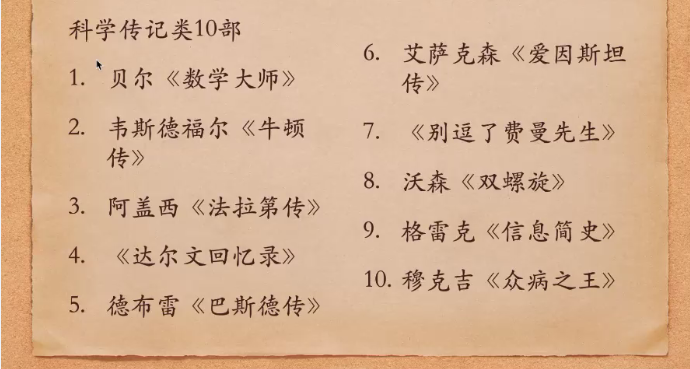 科学传记类10部
1. 贝尔《数学大师》
2. 韦斯德福尔《牛顿
传》
3. 阿盖西《法拉第传》
4. 《达尔文回忆录》
5. 德布雷《巴斯德传》
6. 艾萨克森《爱因斯坦
传》
7. 《别逗了费曼先生》
8. 沃森《双螺旋》
9. 格雷克《信息简史》
10. 穆克吉《众病之王》